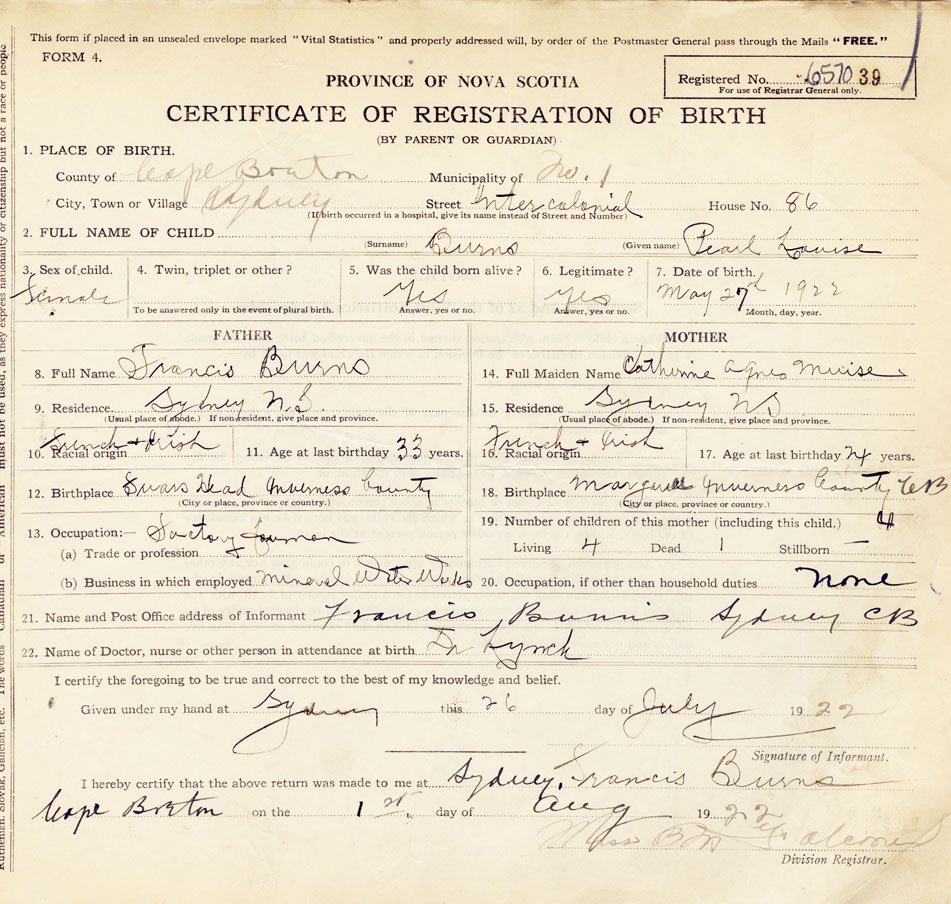 This form if placed in an unsealed envelope marked "Vital Statistics" and properly addressed will, by order of the Postmaster General pass through the Mails "FREE."
FORM 4.
Registered No. 6570 39
For use of Registrar General only.
PROVINCE OF NOVA SCOTIA
CERTIFICATE OF REGISTRATION OF BIRTH
(BY PARENT OR GUARDIAN)
1. PLACE OF BIRTH.
County of Cape Breton Municipality of No. 1
City, Town or Village Sydney Street Intercolonial House No. 86
(If birth occurred in a hospital, give its name instead of Street and Number)
2. FULL NAME OF CHILD
(Surname) Burns (Given name) Pearl Louise
3. Sex of child. 4. Twin, triplet or other? 5. Was the child born alive? 6. Legitimate? 7. Date of birth.
Female Yes Yes May 27 1922
To be answered only in the event of plural birth. Answer, yes or no. Answer, yes or no. Month, day, year.
FATHER MOTHER
8. Full Name Francis Burns 14. Full Maiden Name Catherine Agnes Muise
9. Residence Sydney N.S. 15. Residence Sydney NS
(Usual place of abode.) If non-resident, give place and province. (Usual place of abode.) If non-resident, give place and province.
10. Racial origin French + Irish 11. Age at last birthday 33 years. 16. Racial origin French + Irish 17. Age at last birthday 24 years.
12. Birthplace Head Inverness County 18. Birthplace Inverness County CB
(City or place, province or country.) (City or place, province or country.)
13. Occupation:— 19. Number of children of this mother (including this child.) 4
(a) Trade or profession Factory Living 4 Dead 1 Stillborn –
(b) Business in which employed mineral Water Works 20. Occupation, if other than household duties none
21. Name and Post Office address of Informant Francis Burns Sydney CB
22. Name of Doctor, nurse or other person in attendance at birth Dr Lynch
I certify the foregoing to be true and correct to the best of my knowledge and belief.
Given under my hand at Sydney this 26 day of July 1922
Signature of Informant.
I hereby certify that the above return was made to me at Sydney, Francis Burns
Cape Breton on the 1st. day of Aug 1922
Miss
Division Registrar.
must not be used, as they express nationality or citizenship but not a race or people
Ruthenian, Slovak, Galician, etc. The words Canadian or American